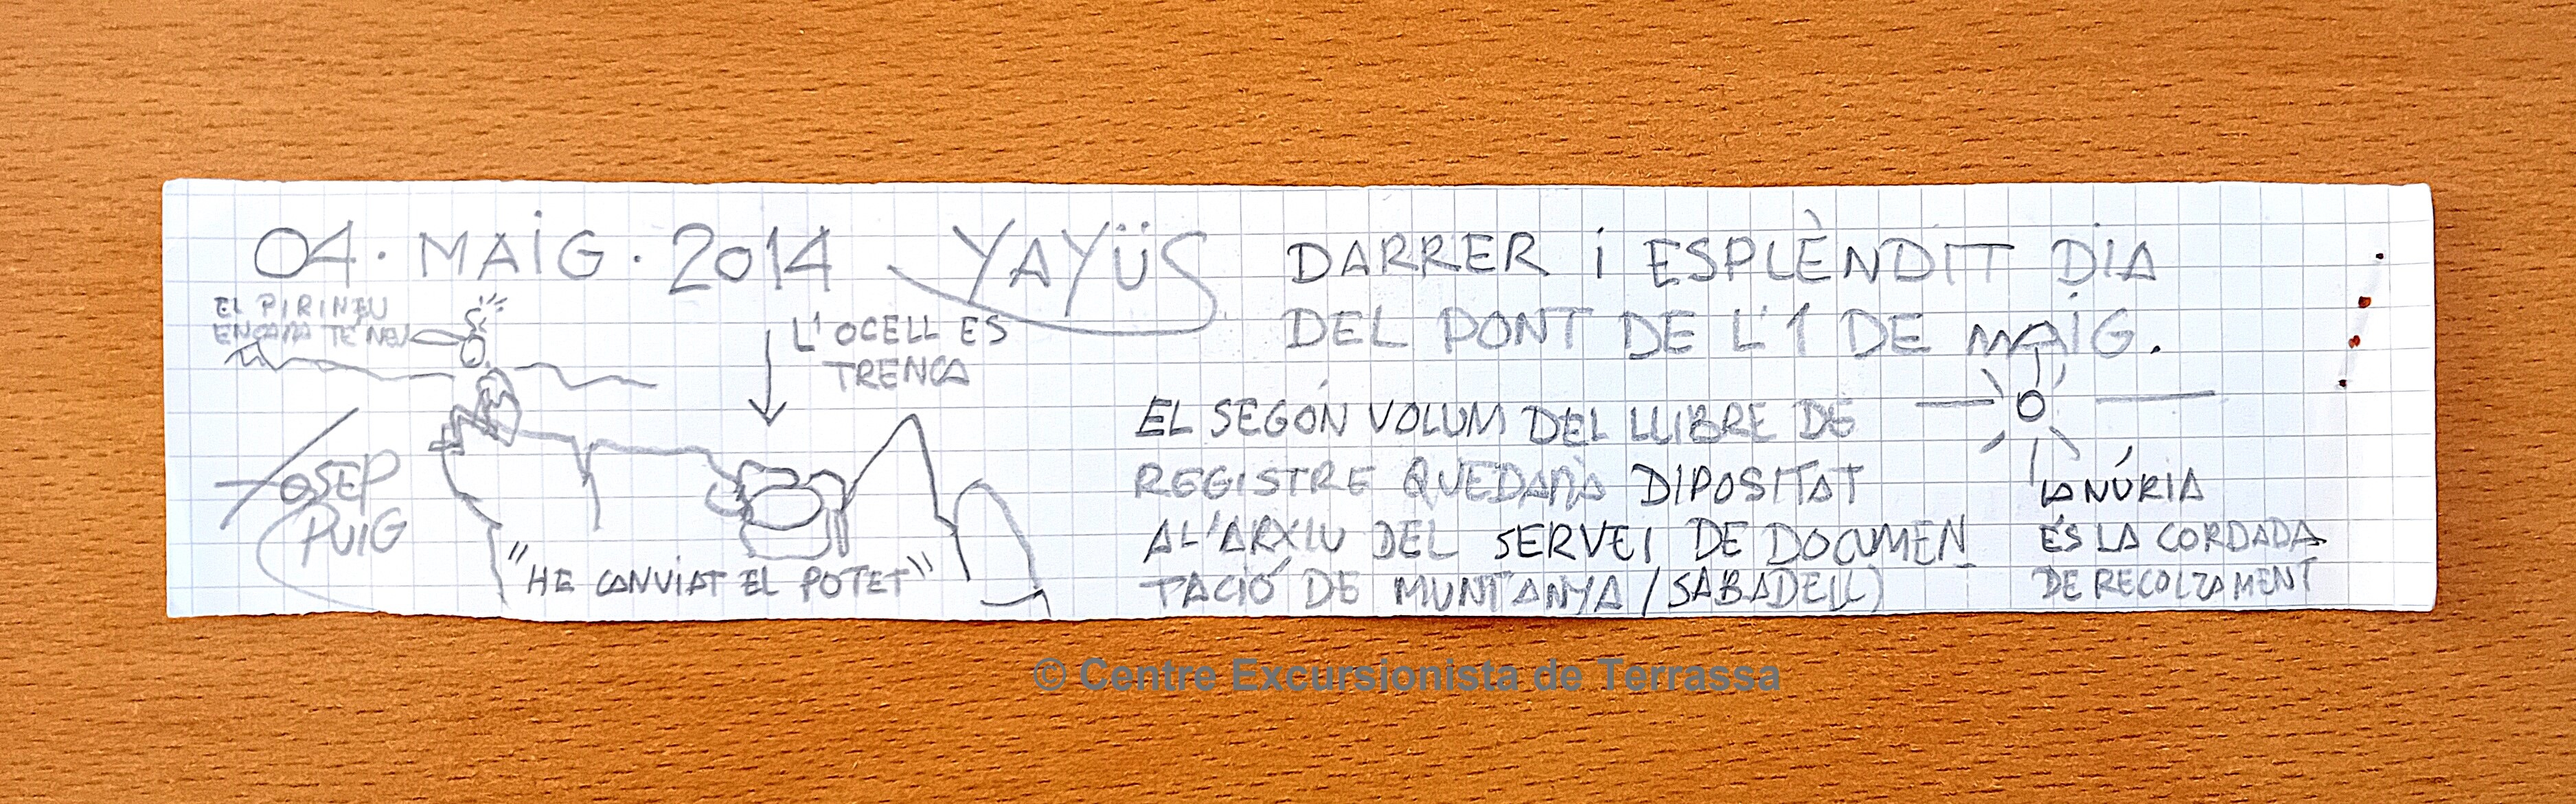 04. MAIG. 2014 YAYÜS
EL PIRINEU
ENCARA TE NEU
L'OCELL ES
TRENCA
JOSEP
PUIG
"HE CANVIAT EL POTET"
DARRER i ESPLÈNDIT DIA
DEL PONT DE L'1 DE MAIG.
EL SEGÓN VOLUM DEL LLIBRE DE
REGISTRE QUEDARÀ DIPOSITAT
A L'ARXIU DEL SERVEI DE DOCUMEN
TACIÓ DE MUNTANYA /SABADELL)
LA NÚRIA
ÉS LA CORDADA
DE RECOLZAMENT
© Centre Excursionista de Terrassa